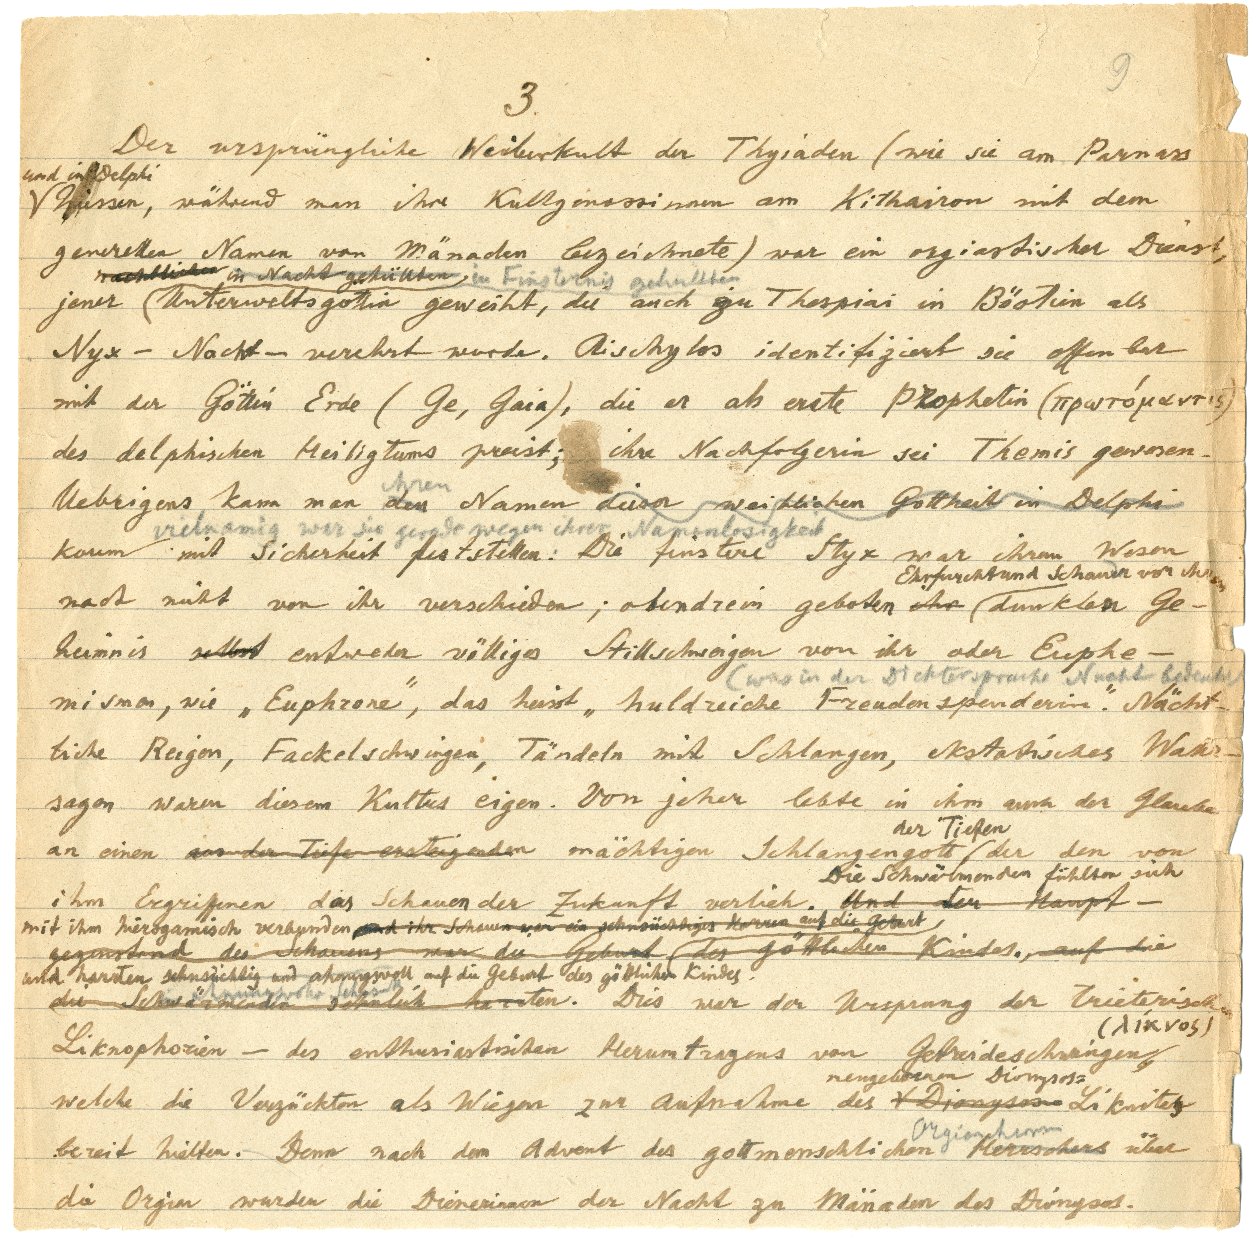 9
3.
Der ursprüngliche Weiberkult der Thyiaden (wie sie am Parnass
und in Delphi
hiessen, während man ihre Kultgenossinnen am Kithairon mit dem
generellen Namen von Mänaden bezeichnete) war ein orgiastischer Dienst,
nächtlichen in Nacht gehüllten, in Finsternis gehüllten
jener (Unterweltsgöttin geweiht, die auch zu Thespiai in Böotien als
Nyx – Nacht – verehrt wurde. Aischylos identifiziert sie offenbar
mit der Göttin Erde (Ge, Gaia), die er als erste Prophetin (πρωτόμαντις)
des delphischen Heiligtums preist; ihre Nachfolgerin sei Themis gewesen.
ihren
Uebrigens kann man den Namen dieser weiblichen Gottheit in Delphi
vielnamig war sie gerade wegen ihrer Namenlosigkeit
kaum mit Sicherheit feststellen: Die finstere Styx war ihrem Wesen
Ehrfurcht und Schauder vor ihrem
nach nicht von ihr verschieden; obendrein geboten ihr (dunklen Ge-
heimnis selbst entweder völliges Stillschweigen von ihr oder Euphe-
(was in der Dichtersprache Nacht bedeutet)
mismen, wie „Euphrone", das heisst „huldreiche Freudenspenderin". Nächt-
liche Reigen, Fackelschwingen, Tändeln mit Schlangen, ekstatisches Wahr-
sagen waren diesem Kultus eigen. Von jeher lebte in ihm auch der Glaube
der Tiefen
an einen aus der Tiefe ersteigenden mächtigen Schlangengott (der den von
Die Schwärmenden fühlten sich
ihm Ergriffenen das Schauen der Zukunft verlieh. Und der Haupt-
mit ihm hierogamisch verbunden und ihr Schauen war ein sehnsüchtiges Harren auf die Geburt
gegenstand des Schauens war die Geburt (des göttlichen Kindes, auf die
und harrten sehnsüchtig und ahnungsvoll auf die Geburt des göttlichen Kindes.
die Schwärmenden harrten. Dies war der Ursprung der trieterischen
(λίκνος)
Liknophorien – des enthusiastischen Herumtragens von Getreideschwingen,
neugeborenen Dionysos=
welche die Verzückten als Wiegen zur Aufnahme des Dionysos Liknites
Orgien
bereit hielten. Denn nach dem Advent des gottmenschlichen Herrschers über
die Orgien wurden die Dienerinnen der Nacht zu Mänaden des Dionysos.